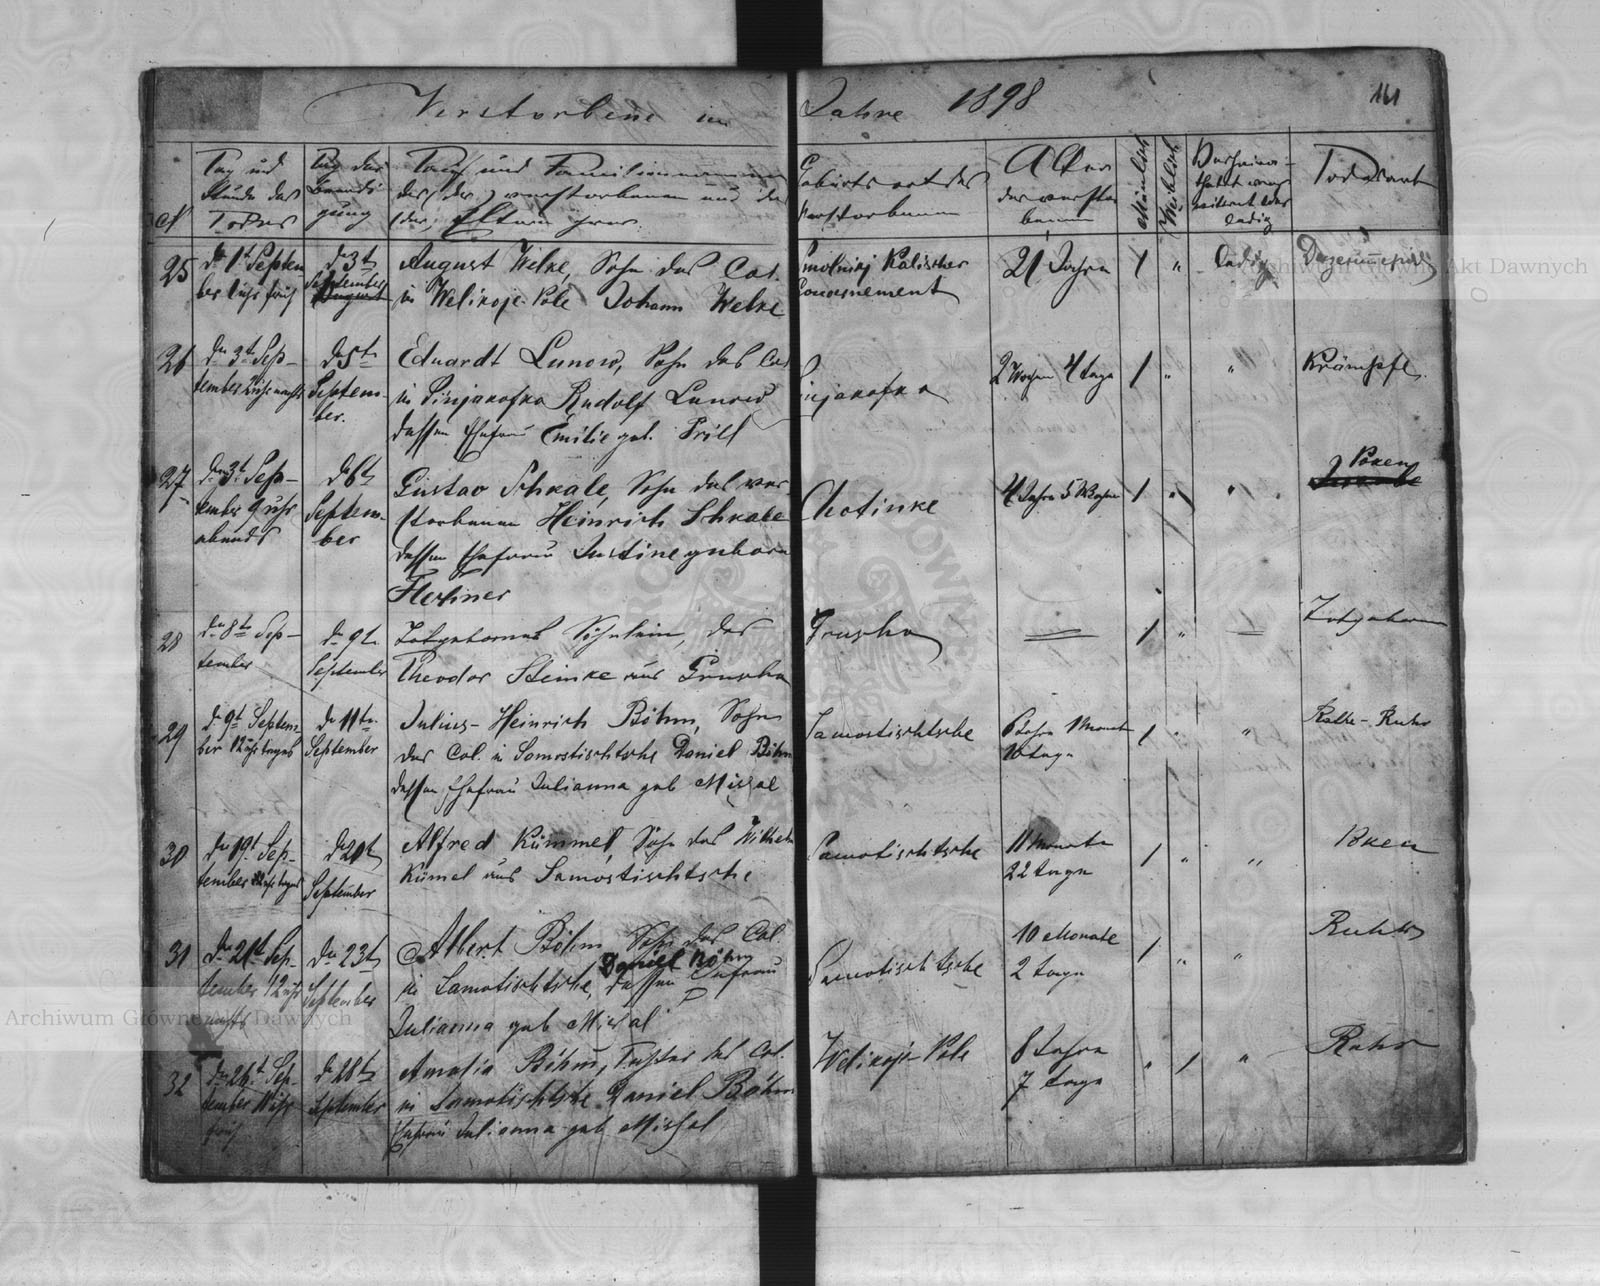 Verstorbene im Jahre 1898
161
№
Tag und
Stunde des
Todes
Tag der
Beerdi-
gung
Tauf und Familiennamen
des (der) verstorbenen und der
(der) Eltern
Geburtsort des
Verstorbenen
Alter
des verstor
benen
Mänlich
Weiblich
Verheira-
thet
wittwet oder
ledig
Todesart
25
d. 1t Septem
ber
früh
d. 3t
September
August
August Welke, Sohn des Col.
in Welikoje-Pole Johann Welke
Smolniki Kalischer
Gouvernement
21 Jahre
1
"
ledig
26
d. 3t Sep-
tember 2 Uhr nachts
d. 5t
Septem-
ber.
Eduardt Lunow, Sohn des Col.
in Sinjakofka Rudolf Lunow
dessen Ehefrau Emilie geb. Prill
Sinjakofka
2 Wochen 4 tage
1
"
"
Krämpfe
27
d. 3t Sep-
tember 9 Uhr
abends
d. 6t
Septem-
ber
Gustav Schkale, Sohn des ver-
storbenen Heinrich Schkale
dessen Ehefrau Justine geborn
Chotinke
4 Jahre 5 Wochen
1
"
"
Poken
28
d. 8t Sep-
tember
d. 9t
September
Todgebornes Söhnlein, des
Theodor Steinke aus Gruscha
Gruscha
1
"
Todgeboren
29
d. 9t Septem-
ber 12 Uhr tages
d. 11t
September
Julius-Heinrich Böhm, Sohn
des Col. in Samostischtsche Daniel Böhm
dessen Ehefrau Julianna geb Missal
Samostischtsche
6 Jahre 1 Monat
10 tage
1
"
"
Rothe-Ruhr
30
d. 19t Sep-
tember Uhr tages
d. 20t
September
Alfred Kümmel, Sohn des Wilhelm
Kümel aus Samostischtsche
Samotischtsche
11 Monate
22 tage
1
"
"
Poken
31
d. 21t Sep-
tember 12 Uhr
nachts
d. 23t
September
Albert Böhm, Sohn des Col.
Daniel Böhm
in Samotischtsche, dessen Ehefrau
Julianna geb Missal
Samotischtsche
10 Monate
2 tage
1
"
"
Ruhr
32
d. 26t Sep-
tember 11 Uhr
früh
d. 28t
September
Amalia Böhm, Tochter des Col.
in Samotischtsche Daniel Böhm
Ehefrau Julianna geb Missal
Welikoje-Pole
8 Jahre
7 tage
"
1
"
Ruhr
Archiwum Główne Akt Dawnych
Archiwum Główne Akt Dawnych